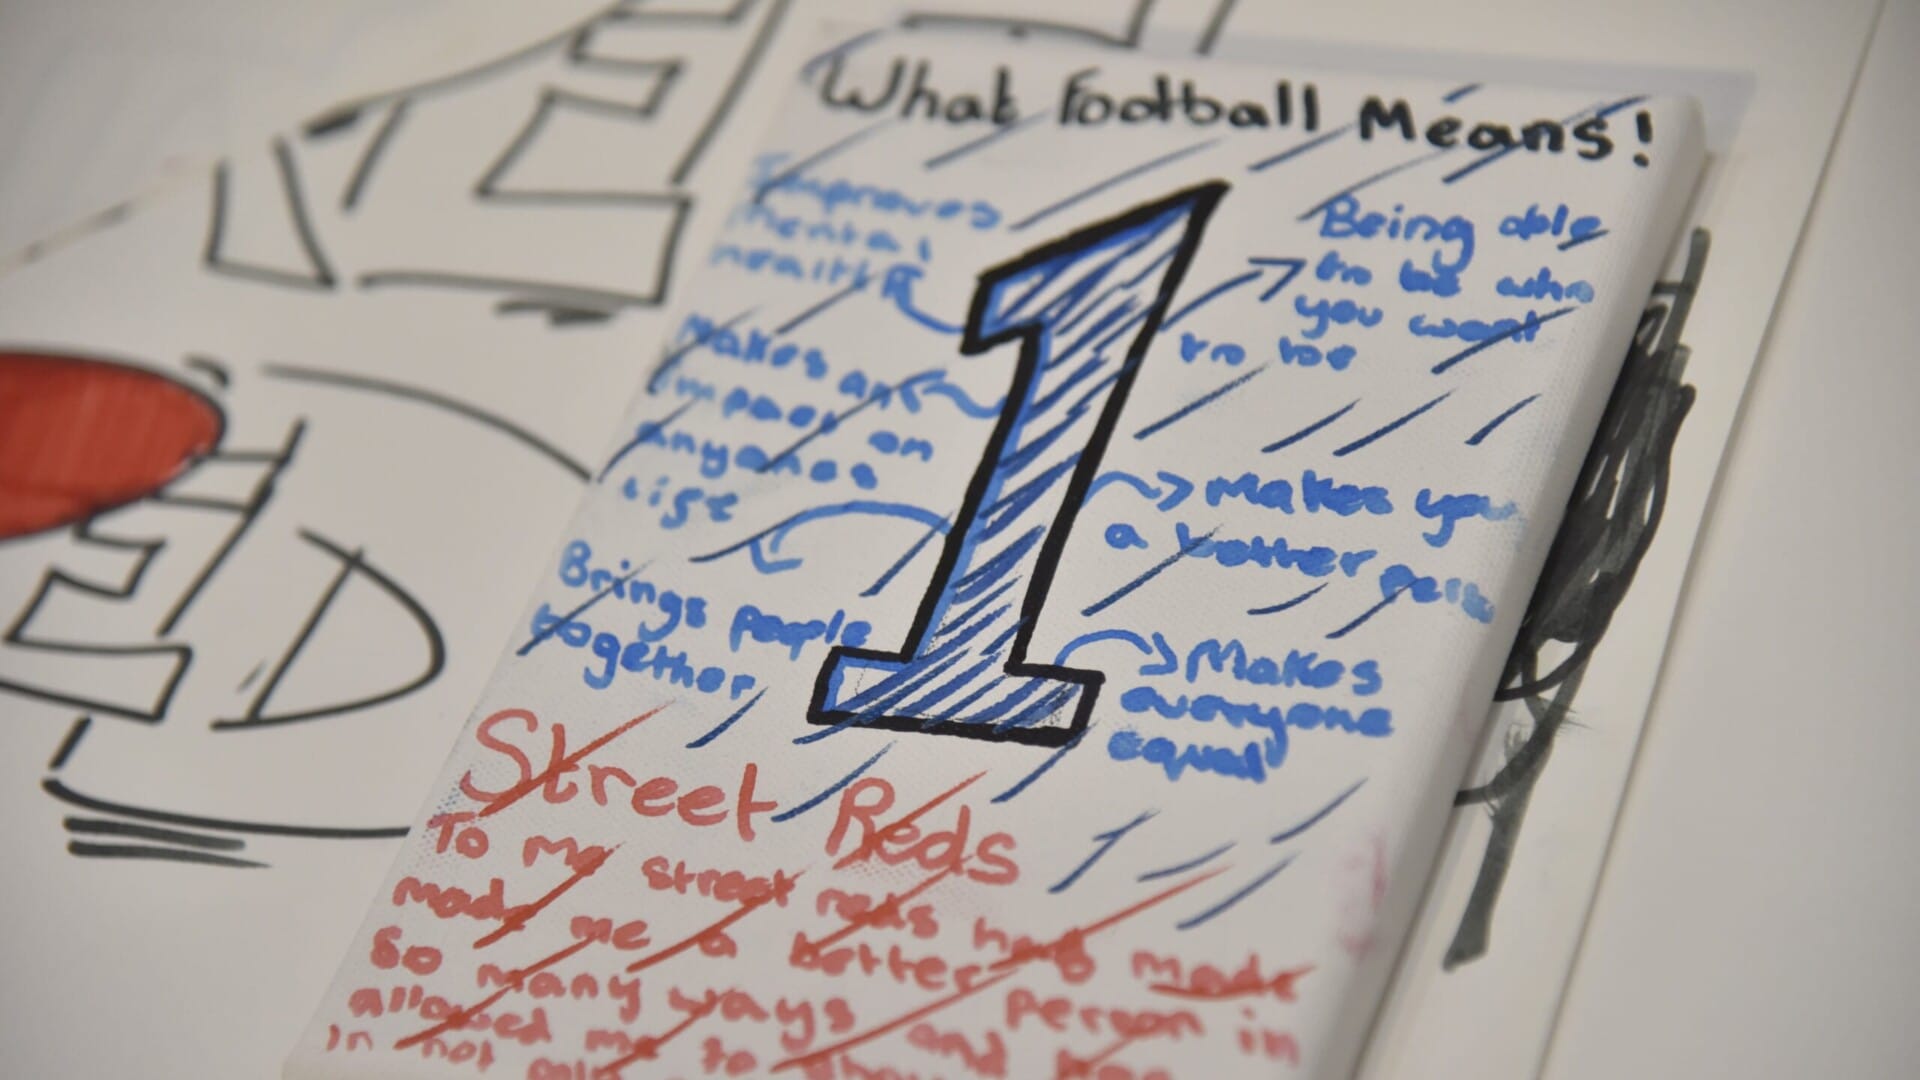 What Football Means!
Improves
Mental
Health
Makes an
impact on
anyones
life
Brings people
together
1
Being able
to be who
you want
to be
Makes you
a better
Makes
everyone
equal
Street Reds
To me street reds made
made me a better person in
So many ways and has
allowed me to show
in not
ED